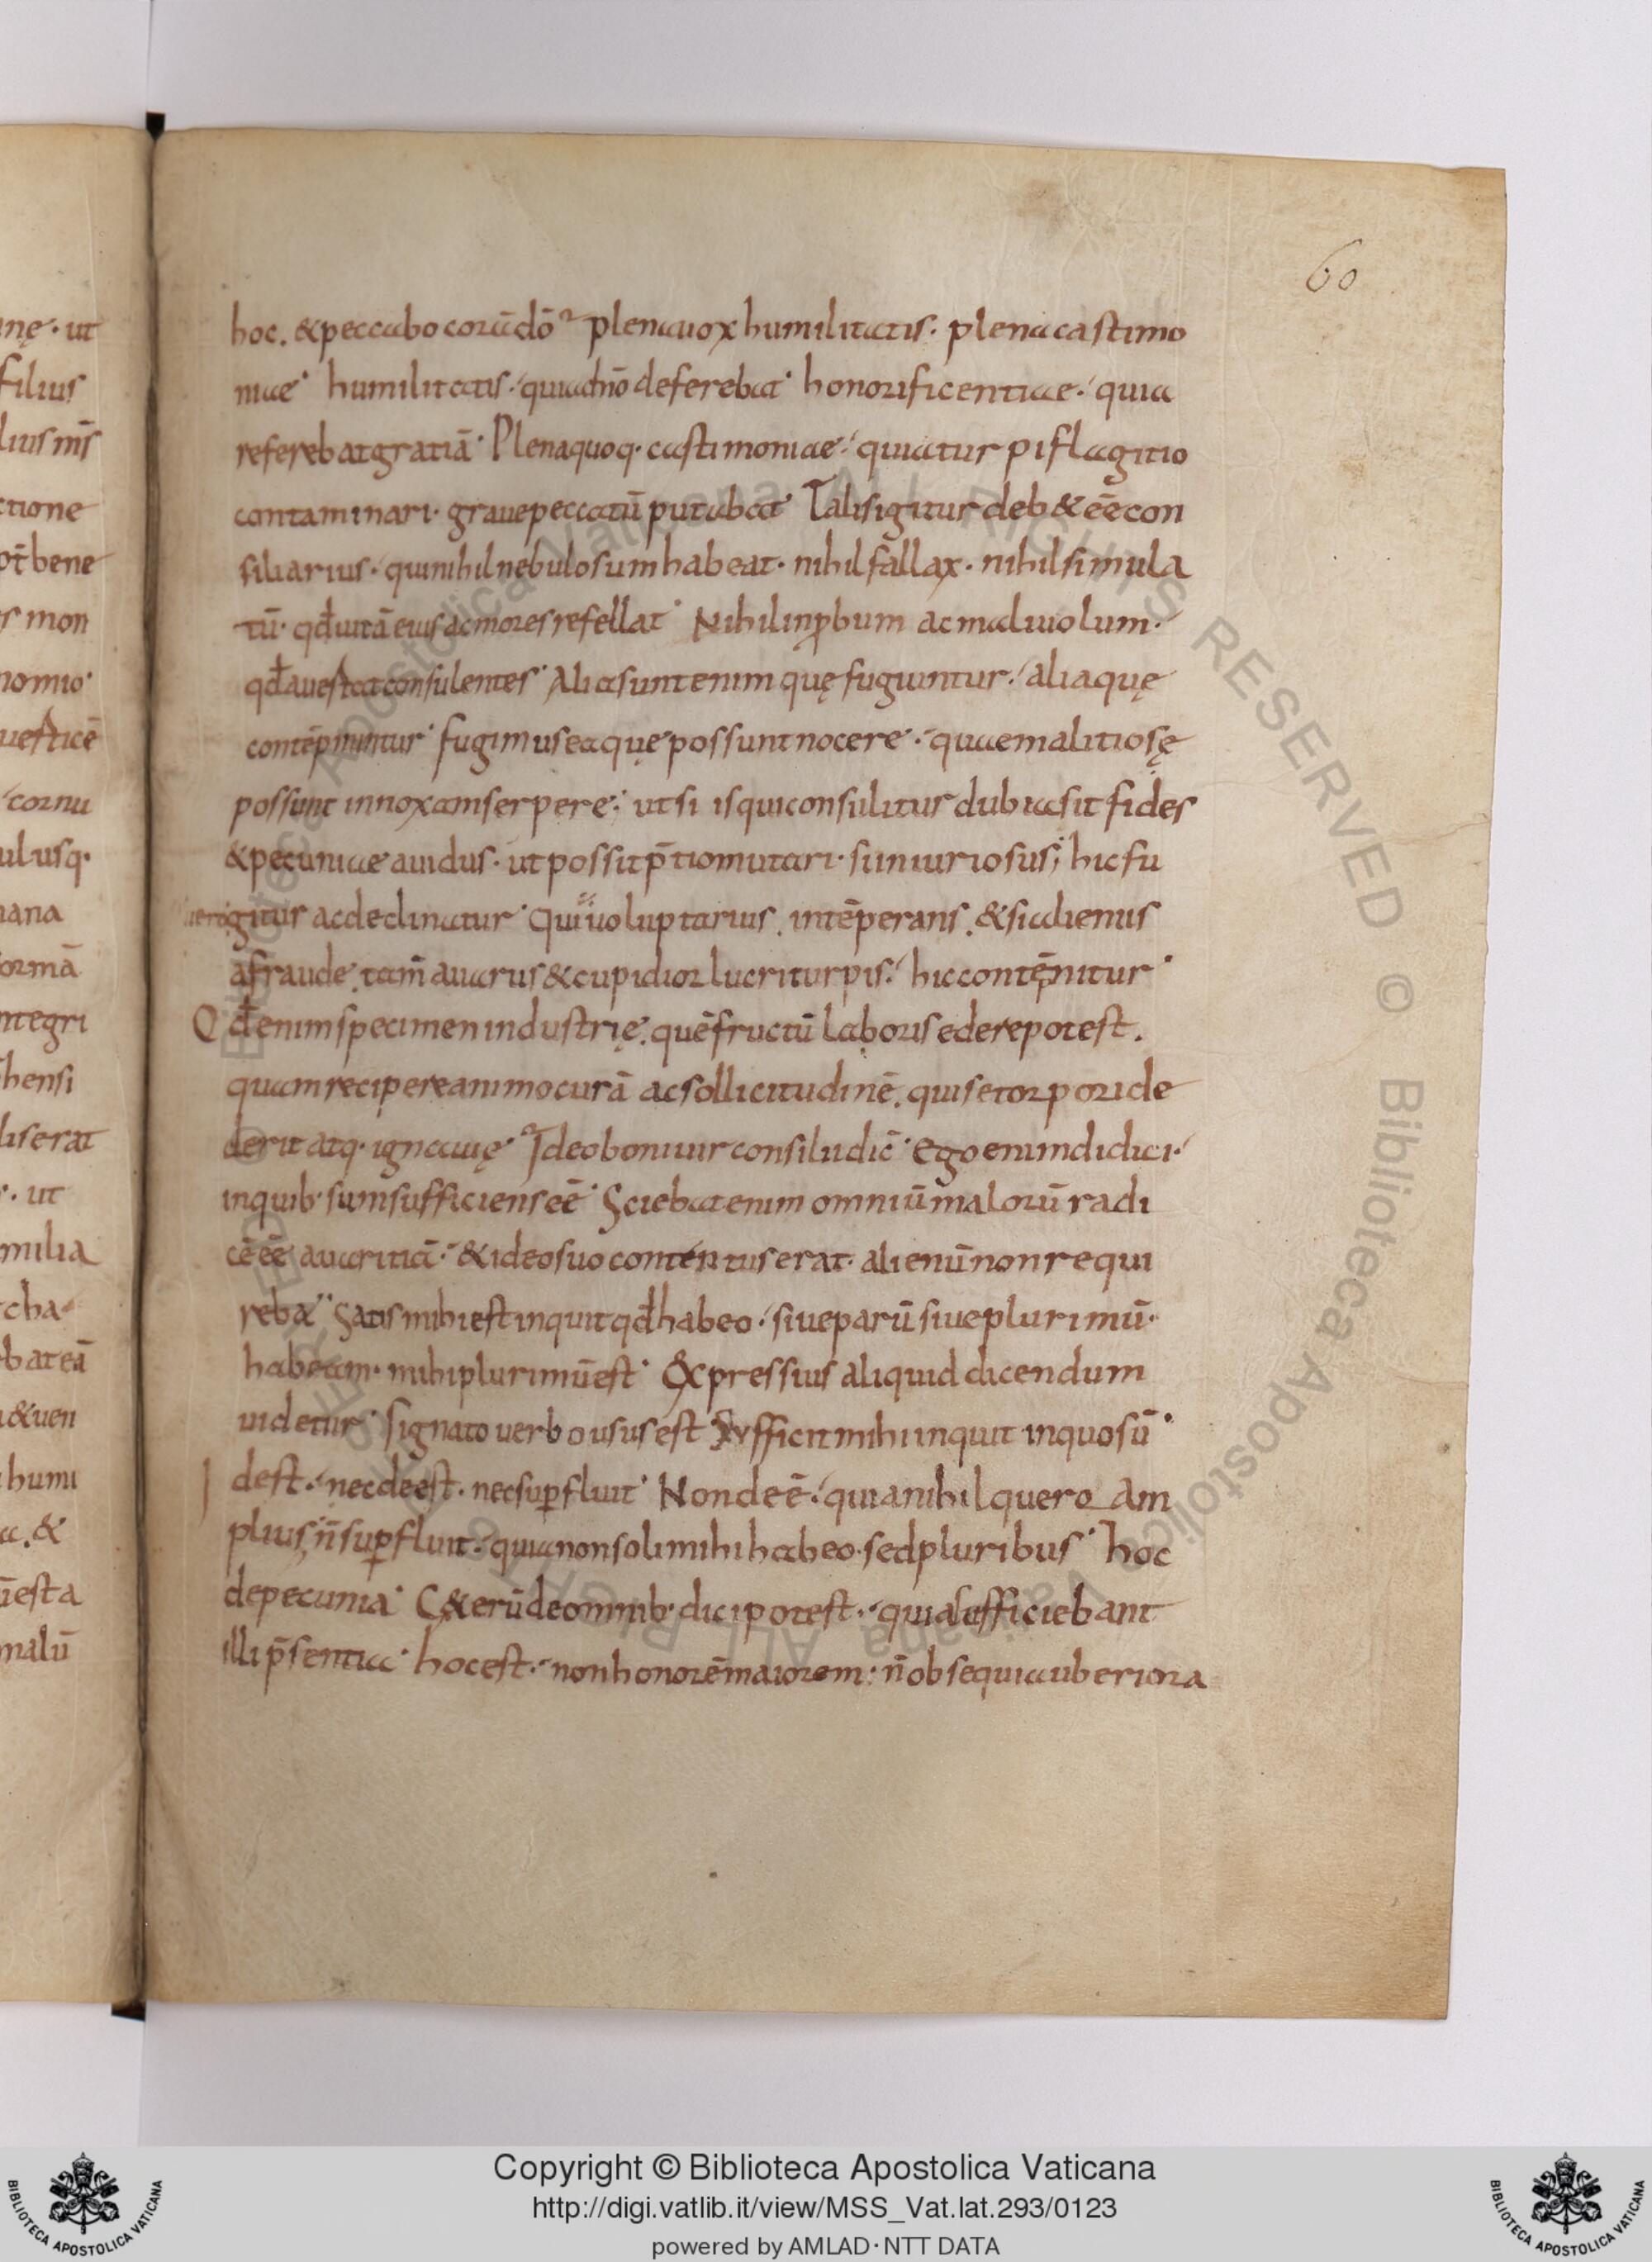 60
nę· ut
filius
lius nr̄s
ctione
ot̄ bene
s mon
nomio·
uesticē
cornu
ulusq·
nana
formā
ntegri
hensi
liserat
ut
milia
cha
bateā
&uen
humi
a. &
ēest a
malū
hoc. & peccabo corā dō plena uox humilitatis· plena castimo
niae· humilitatis· quia dn̄o deferebat· honorificentiae· quia
referebat gratiā· Plena quoq· castimoniae· quia turpi flagitio
contaminari· graue peccatū putabat· Talis igitur deb& eē con
siliarius· qui nihil nebulosum habeat· nihil fallax· nihil simula
tū· qđ uitā eius ac mores refellat· Nihil inꝓbum ac maliuolum·
qđ auertat consulentes· Alia sunt enim quę fugiuntur· alia quę
contēpnuntur· fugimus ea quę possunt nocere· quae malitiosę
possunt in noxam serpere· ut si is qui consulitur dubia sit fides
& pecuniae auidus· ut possit p̄tio mutari· si iniuriosus; hic fu
gitur ac declinatur· Qui uoluptarius. intēperans. & si alienus
a fraude. tam̄ auarus & cupidior lucri turpis· hic contēnitur·
Qđ enim specimen industrię. quē fructū laboris edere potest.
quam recipere animo curā ac sollicitudinē. qui se torpori de
derit atq· ignauię· Ideo boni uir consilii dic̄· Ego enim didici·
in quib· sum sufficiens eē· Sciebat enim omniū malorū radi
cē eē auaritiā· & ideo suo contentus erat· alienū non requi
rebat· Satis mihi est inquit qđ habeo· siue parū siue plurimū·
habeam· mihi plurimū est· Expressius aliquid dicendum
uidetur· signato uerbo usus est Sufficit mihi inquit in quo sū·
Idest· nec deest· nec suꝑfluit· Non deē· quia nihil quero am
plius; n̄ suꝑfluit· quia non soli mihi habeo· sed pluribus· hoc
de pecunia· C&erū de omnib· dici potest· quia sufficiebant
illi p̄sentia· hoc est· non honorē maiorem· n̄ obsequia uberiora
Copyright © Biblioteca Apostolica Vaticana
http://digi.vatlib.it/view/MSS_Vat.lat.293/0123
powered by AMLAD·NTT DATA
BIBLIOTECA APOSTOLICA VATICANA
BIBLIOTECA APOSTOLICA VATICANA
© Biblioteca Apostolica Vaticana ALL RIGHTS RESERVED
© Biblioteca Apostolica Vaticana ALL RIGHTS RESERVED